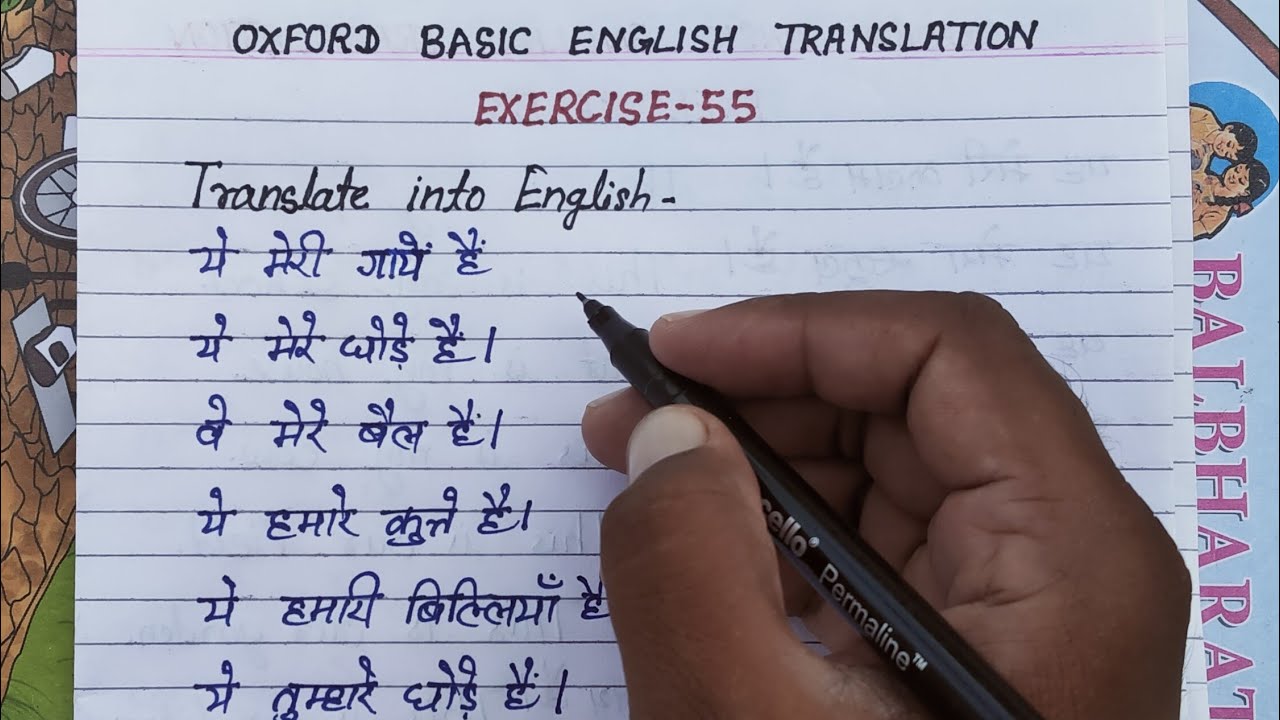 OXFORD BASIC ENGLISH TRANSLATION
EXERCISE-55
Translate into English-
ये मेरी गायें हैं
ये मेरे घोड़े हैं।
वे मेरे बैल हैं।
ये हमारे कुत्ते है।
ये हमारी बिल्लियाँ है
ये तुम्हारे घोड़े हैं।
cello® Permaline™
BALBHARAT